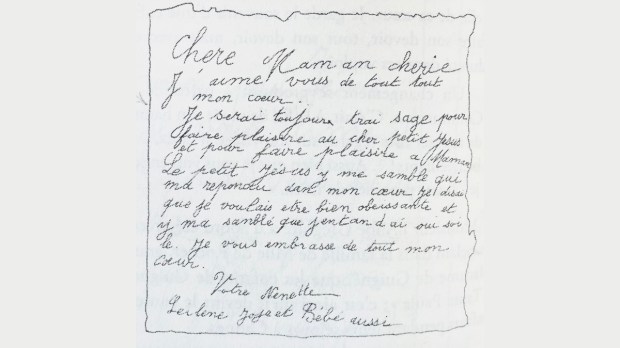 Chere Maman cherie
J'aime vous de tout tout
mon cœur.
Je serai toujours trai sage pour
faire plaisire au cher petit Jesus
et pour faire plaisire a Maman
Le petit Jésus y me samble qui
ma repondu dan mon cœur je disai
que je voulais etre bien obeissante et
y ma samblé que jentandai oui soi
le. Je vous embrasse de tout mon
cœur.
Votre Nenette
et Bébé aussi